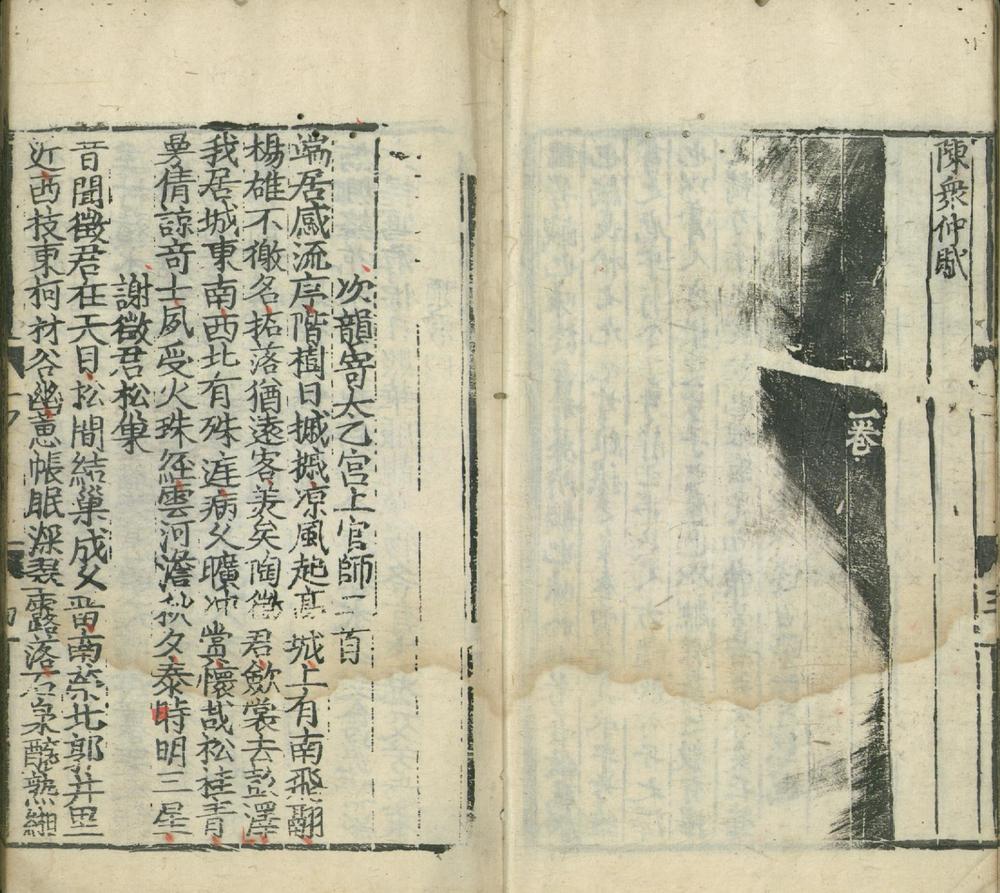 陳衆仲賦
一卷
三
次韻寄太乙宫上官師二首
端居感流序階樹日摵摵凉風起高城上有南飛翮
楊雄不徼名拓落猶遠客美矣陶徵君歛裳去彭澤
我居城東南西北有殊涯病父曠冲當懷哉松桂青
曼倩諒奇士夙受火珠經雲河澹秋夕泰時明三星
謝徵君松巢
昔聞徵君在天日松間結巢成父畨南榮北郭井里
近西枝東柯村谷幽蕙帳眠深露落醒熟緗